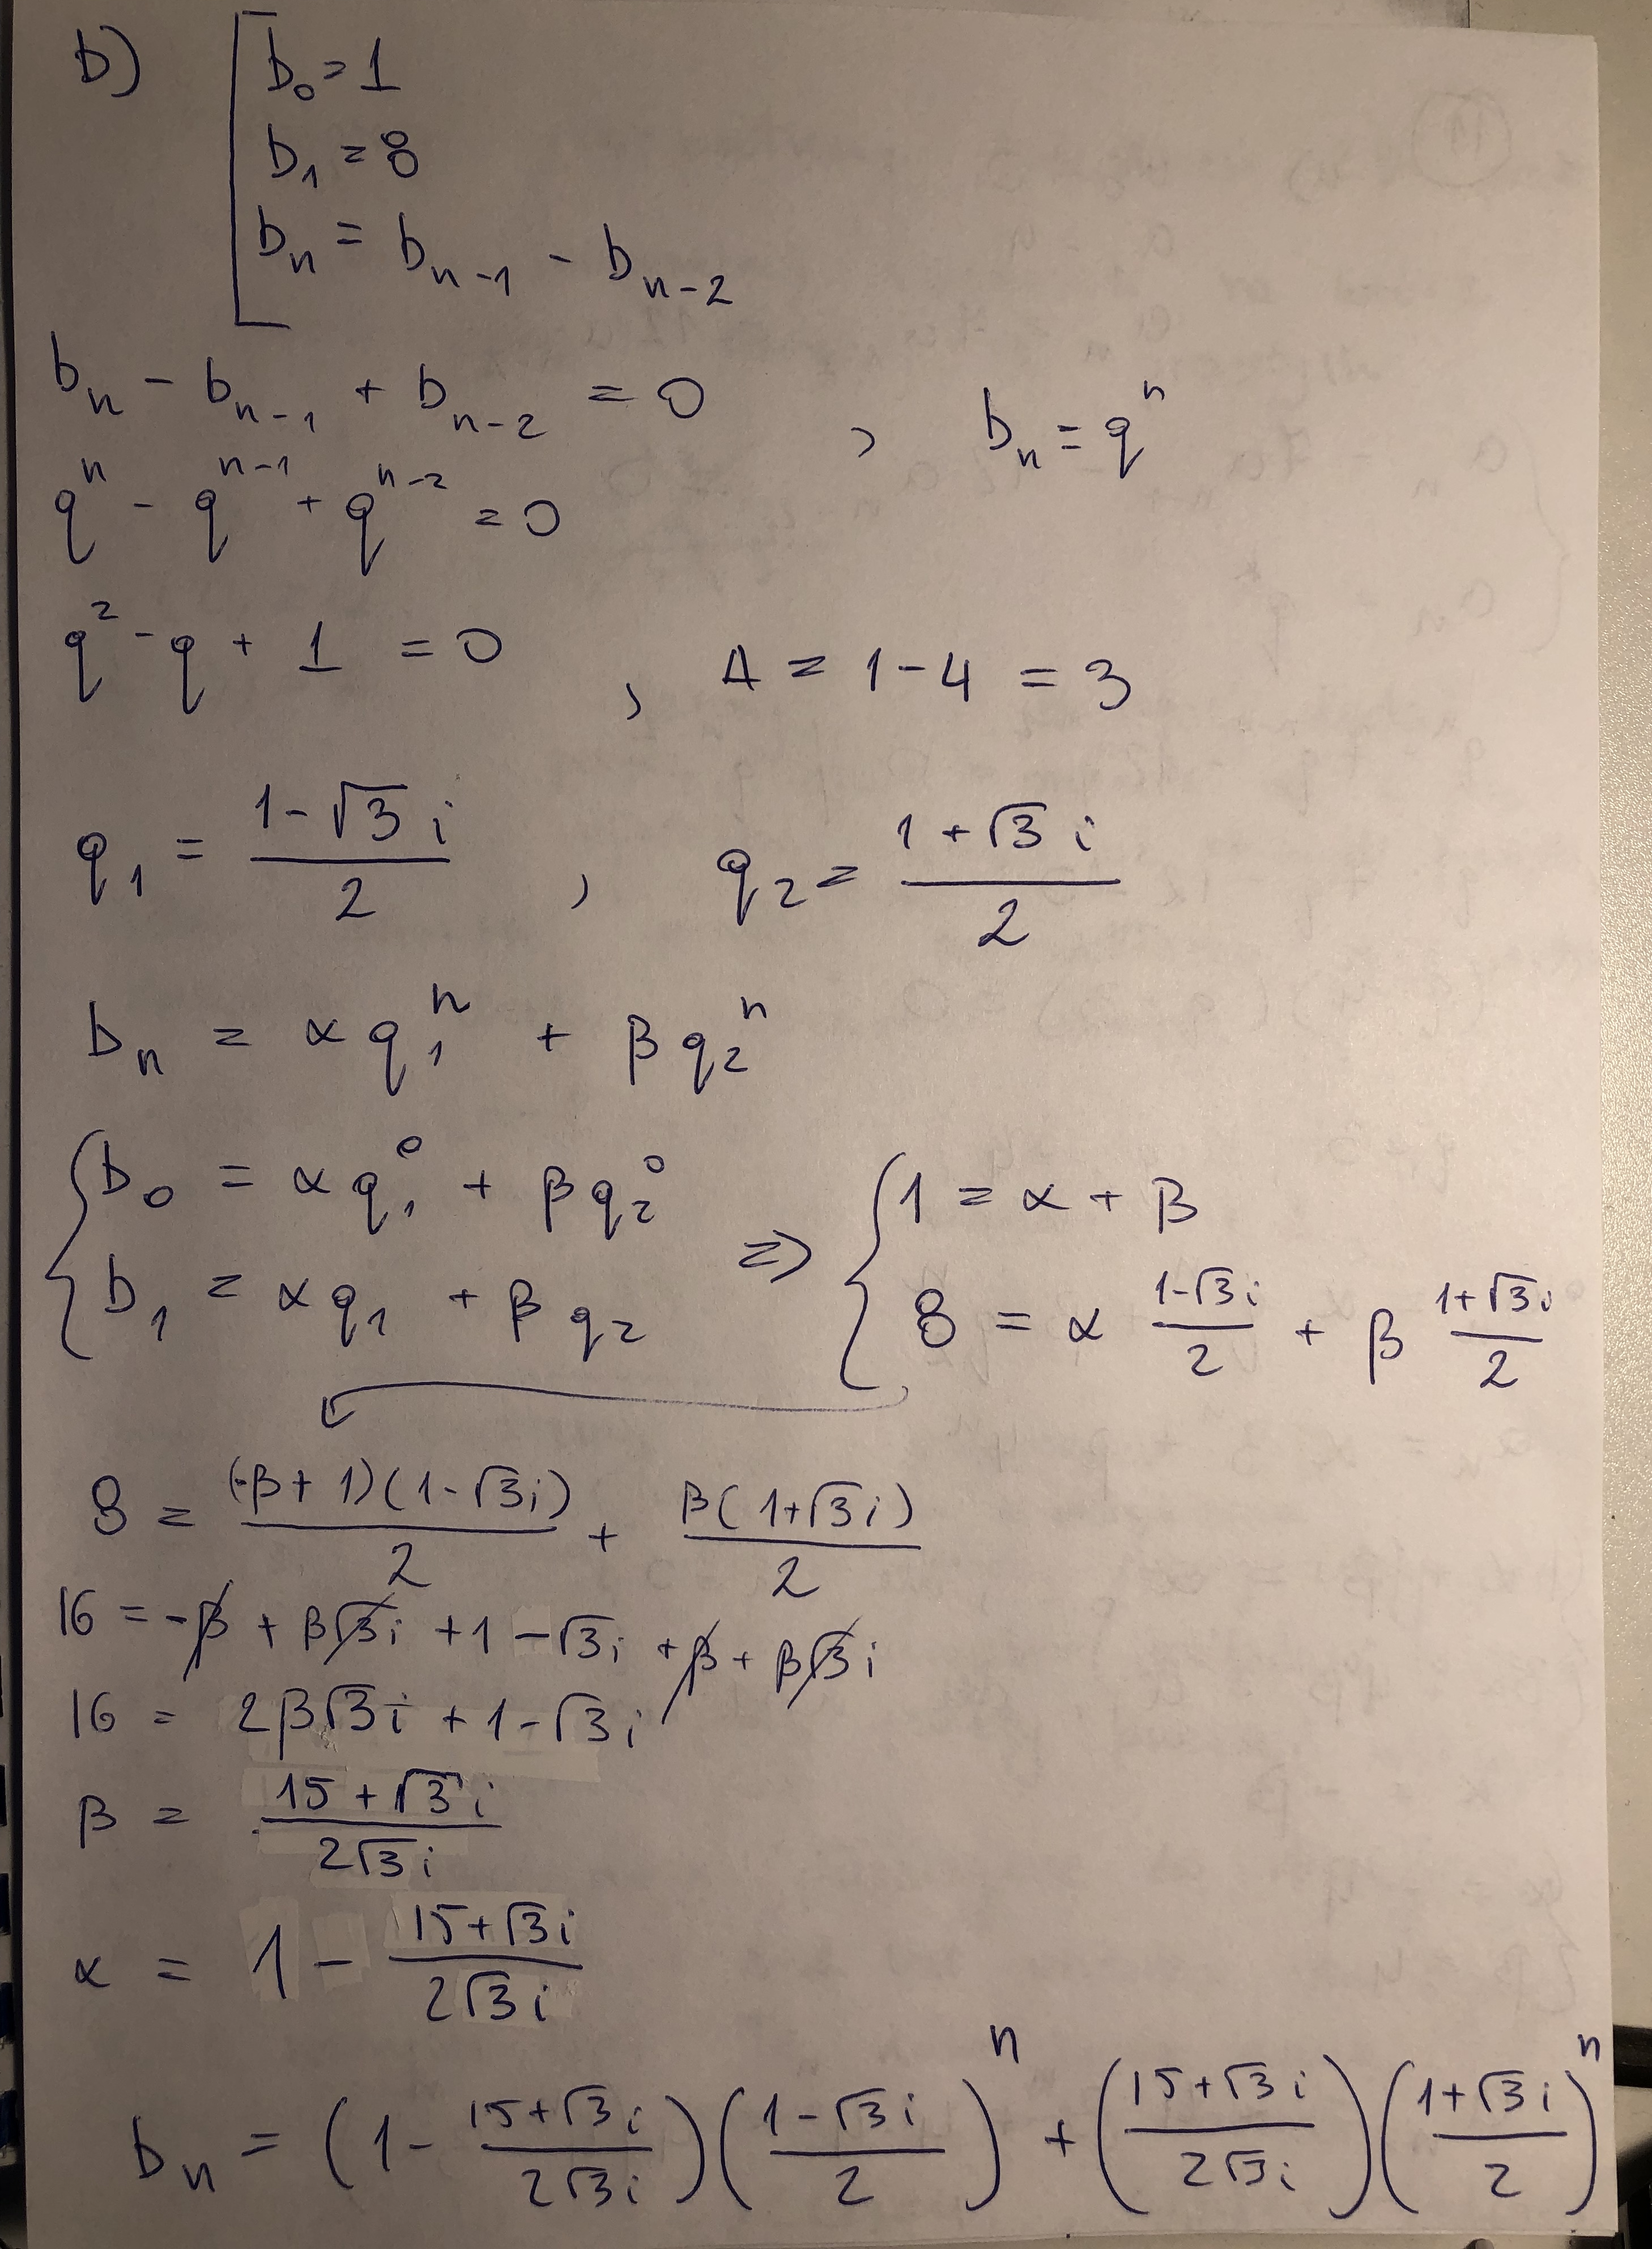 b)
b₀ = 1
b₁ = 8
bₙ = bₙ₋₁ - bₙ₋₂
bₙ - bₙ₋₁ + bₙ₋₂ = 0 , bₙ = qⁿ
qⁿ - qⁿ⁻¹ + qⁿ⁻² = 0
q² - q + 1 = 0 , Δ = 1 - 4 = 3
q₁ = (1 - √3 i)/2 , q₂ = (1 + √3 i)/2
bₙ = α q₁ⁿ + β q₂ⁿ
{ b₀ = α q₁⁰ + β q₂⁰ ⇒ { 1 = α + β
{ b₁ = α q₁ + β q₂ ⇒ { 8 = α (1-√3 i)/2 + β (1+√3 i)/2
8 = (-β + 1)(1 - √3 i)/2 + β(1+√3 i)/2
16 = -β + β√3 i + 1 - √3 i + β + β√3 i
16 = 2β√3 i + 1 - √3 i
β = (15 + √3 i)/(2√3 i)
α = 1 - (15+√3 i)/(2√3 i)
bₙ = (1 - (15+√3 i)/(2√3 i)) ((1-√3 i)/2)ⁿ + ((15+√3 i)/(2√3 i)) ((1+√3 i)/2)ⁿ